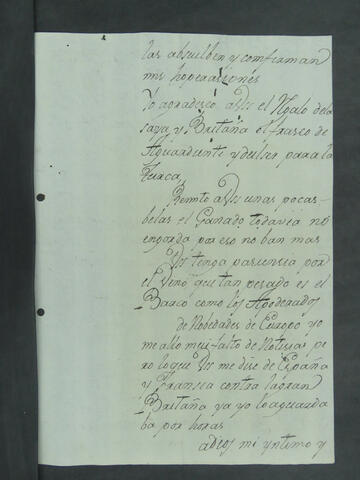 las absuelben y comfirman
mis hoperaciones
Yo agradesco a Vd el Regalo de la
saya y Britaña el frasco de
Aguardiente y dulses para la
Turca
Remito a Vd unas pocas
belas el Ganado todavia no
engorda por eso no ban mas
Vd tenga pasiensia por
el Vino que tan pesado es el
Barco como los Apoderados
de Nobedades de Europa yo
me allo muy falto de Notisias pe
ro lo que Vd me dise de España
y Fransia contra la gran
Britaña ya yo lo aguarda
ba por horas
adios mi yntimo y